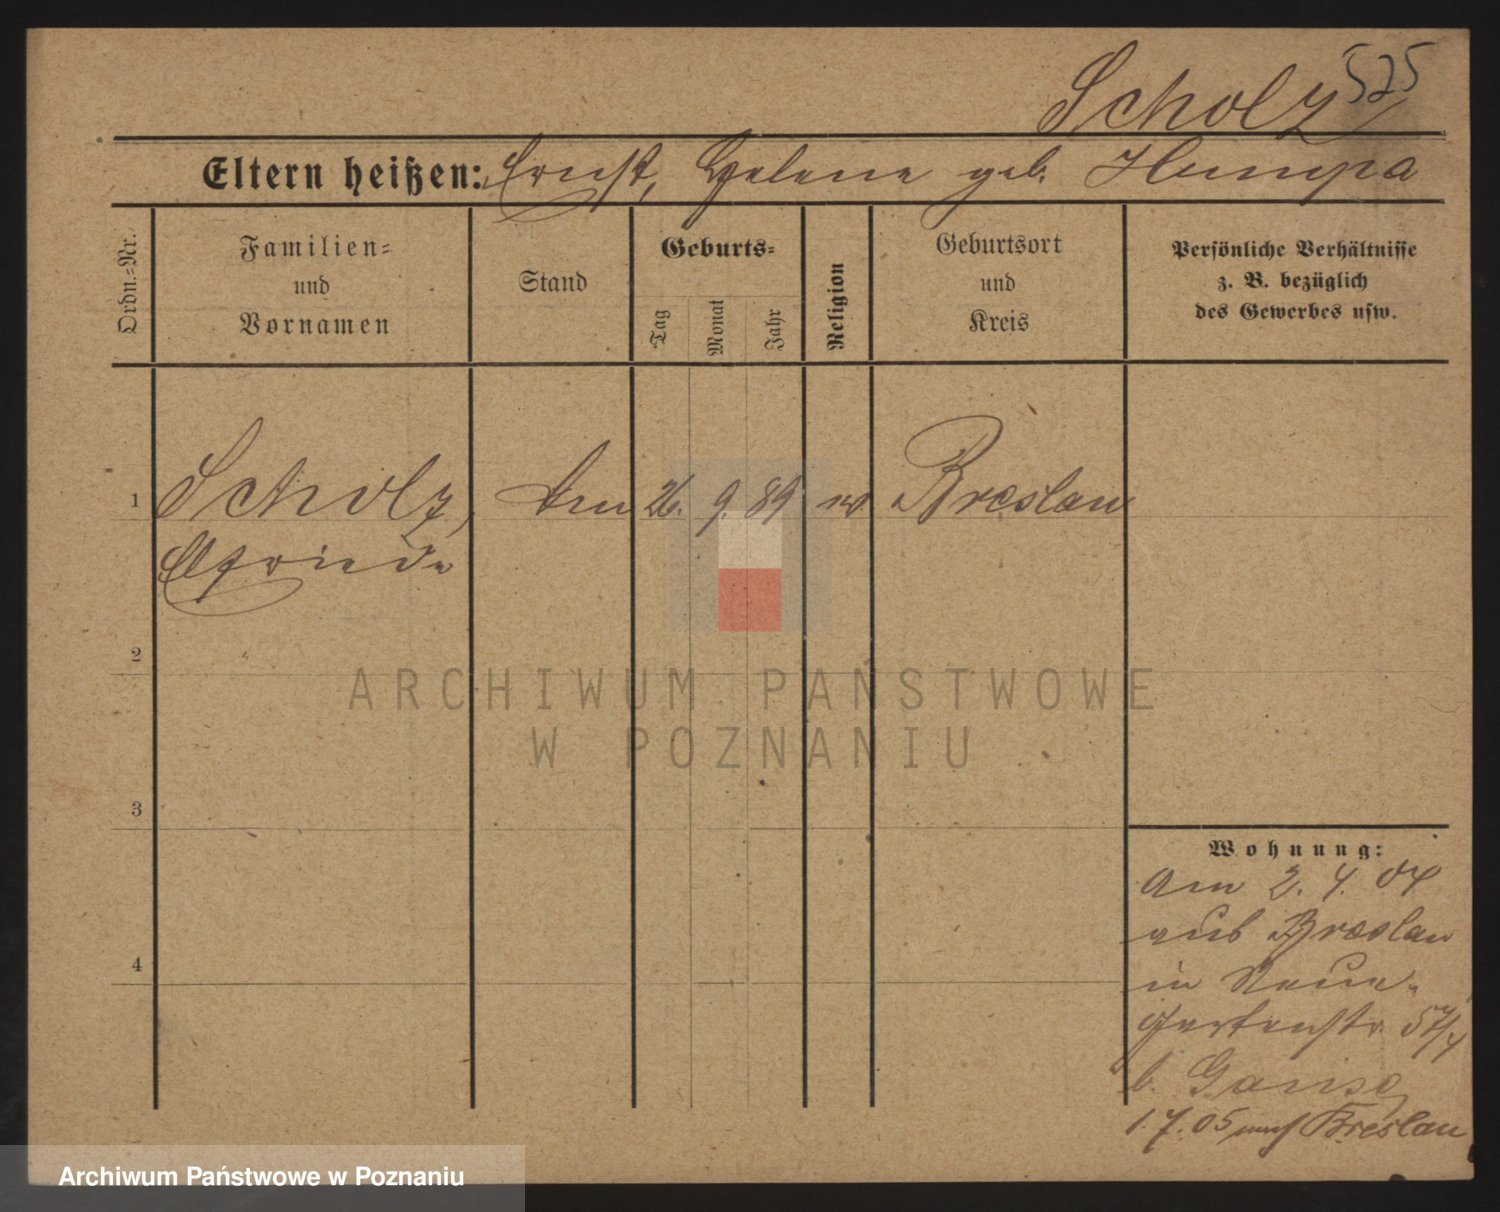 Scholz 525
Eltern heißen: Ernst, Helene geb. Humpa
Ordn.=Nr.
Familien=
und
Vornamen
Stand
Geburts=
Tag
Monat
Jahr
Religion
Geburtsort
und
Kreis
Persönliche Verhältnisse
z. B. bezüglich
des Gewerbes usw.
1 Scholz, 26. 9. 89 Breslau
Elfriede
2
3
4
Wohnung:
Am 2. 4. 04
aus Breslau
in Neue-
Gartenstr. 57/4
b. Ganse
1.7.05 nach Breslau
ARCHIWUM PAŃSTWOWE
W POZNANIU
Archiwum Państwowe w Poznaniu